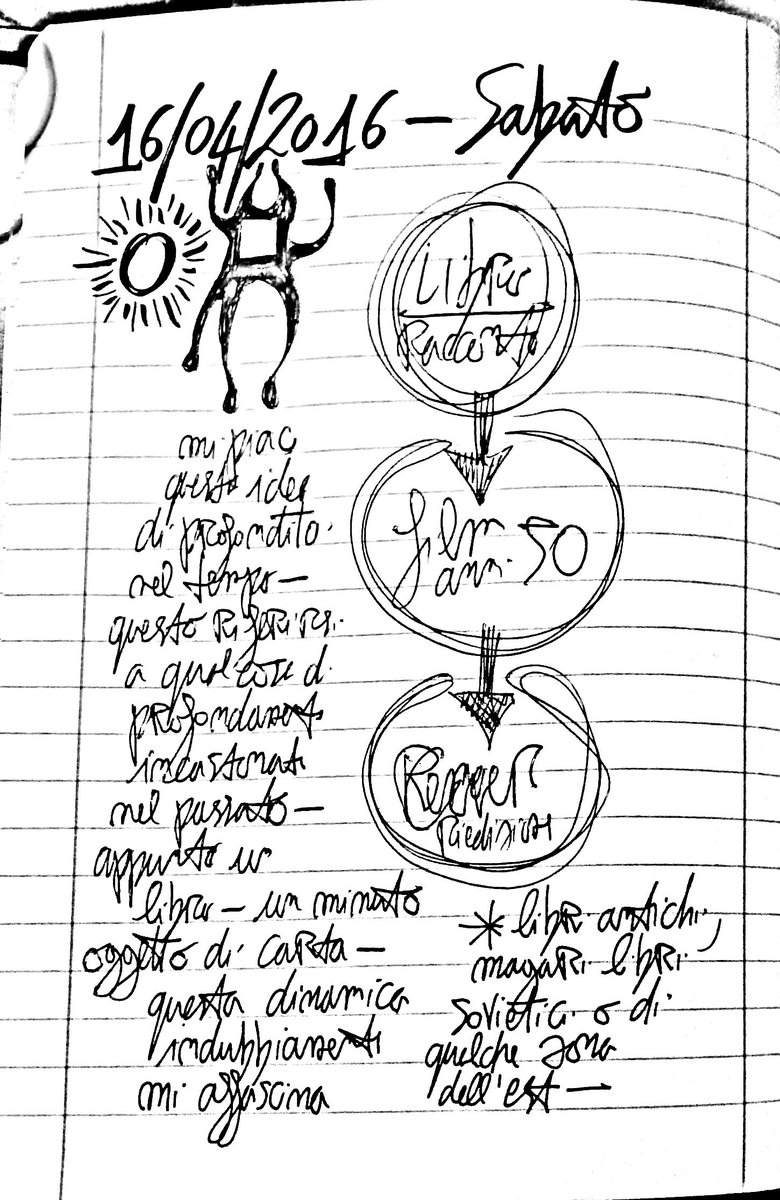 16/04/2016 — Sabato
Libro
Racconto
film
anni 50
riedizione
mi piace
questa idea
di profondità
nel tempo —
questo riferirsi
a qualcosa di
profondamente
incastonato
nel passato —
appunto un
libro — un minuto
oggetto di carta —
questa dinamica
indubbiamente
mi affascina
* libri antichi,
magari libri
sovietici o di
qualche zona
dell'est —